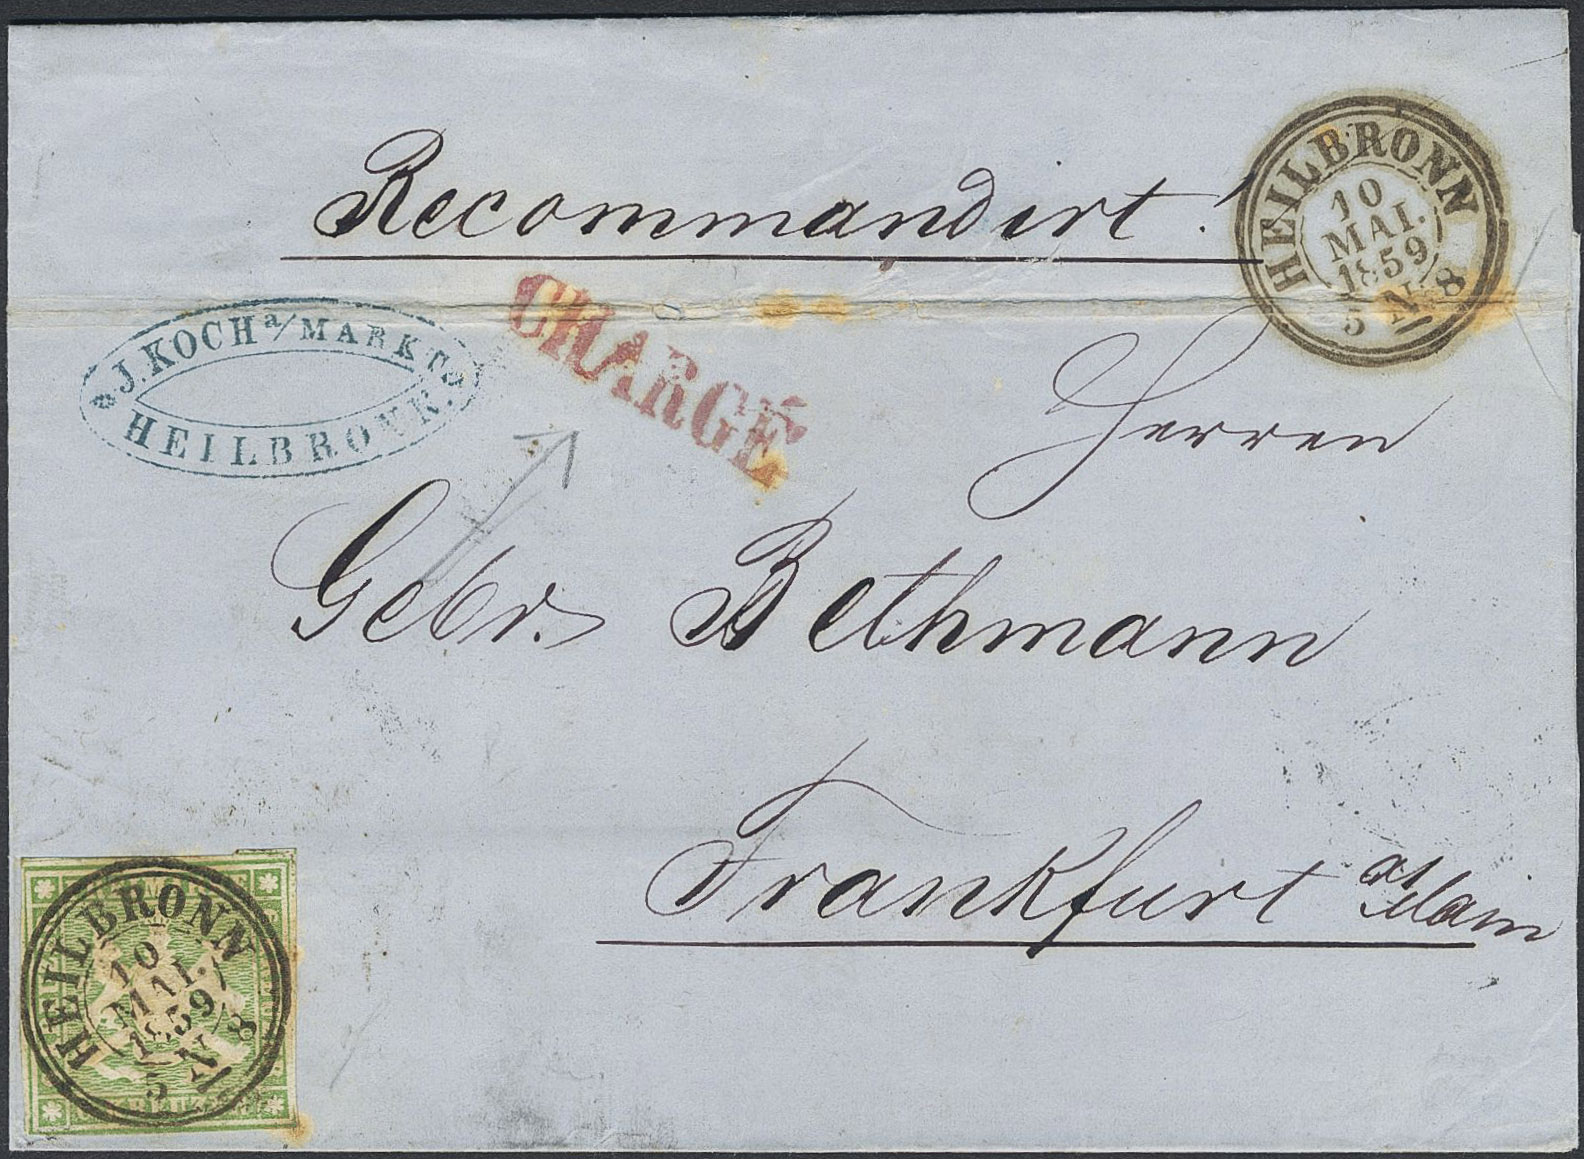 Recommandirt!
HEILBRONN
10
MAI.
1859
5 N 8
J. KOCH a/MARKT
HEILBRONN.
CHARGÉ
Herren
Gebr. Bethmann
Frankfurt a/Main
HEILBRONN
10
MAI.
1859
5 N 8
KREUZER